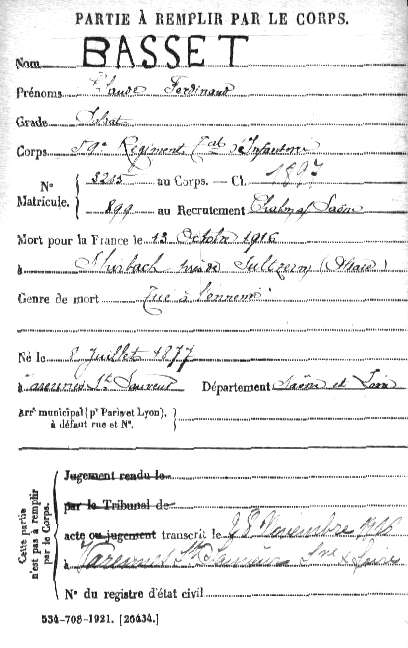 PARTIE À REMPLIR PAR LE CORPS.
Nom BASSET
Prénoms Claude Ferdinand
Grade Soldat
Corps 59e Régiment d'Infanterie
N° Matricule. 3205 au Corps. — Cl. 1897
899 au Recrutement Chalon s/ Saône
Mort pour la France le 13 Octobre 1916
à près de Sultzern (Alsace)
Genre de mort Tué à l'ennemi
Né le 8 Juillet 1877
à Varennes St Sauveur Département Saône et Loire
Arrt municipal (pr Paris et Lyon), à défaut rue et N°.
Cette partie n'est pas à remplir par le Corps.
Jugement rendu le
par le Tribunal de
acte ou jugement transcrit le 28 Novembre 1916
à Varennes St Sauveur Sne & Loire
N° du registre d'état civil
534-708-1921. [26434.]